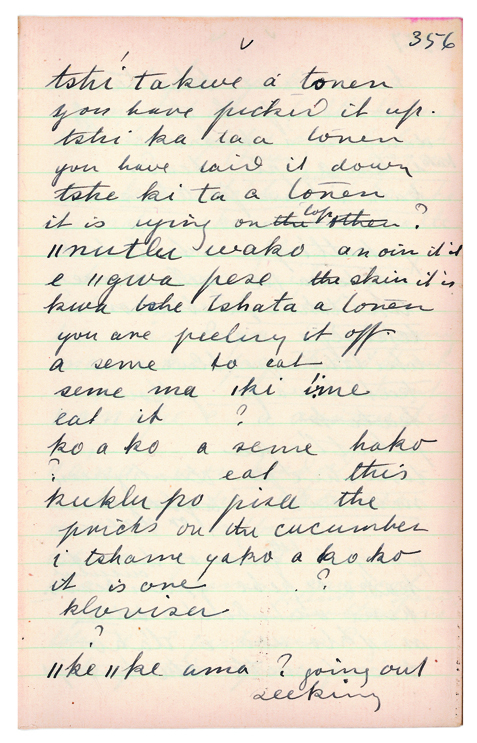 356
tshi takwe a tonen
you have picked it up.
tshi ka taa tonen
you have laid it down
tshe ki ta a tonen
it is lying on the top other ?
"nutlu wako anoin it it
e "gwa pese the skin it is
kwa tshe tshata a tonen
you are peeling it off.
a seme to eat
seme ma ıki ime
eat it ?
ko a ko a seme hako
? eat this
kuklu po pisa the
pricks on the cucumber
i tshame yako a ko ko
it is one ?
kloviser
?
"ke "ke ama ? going out
seeking